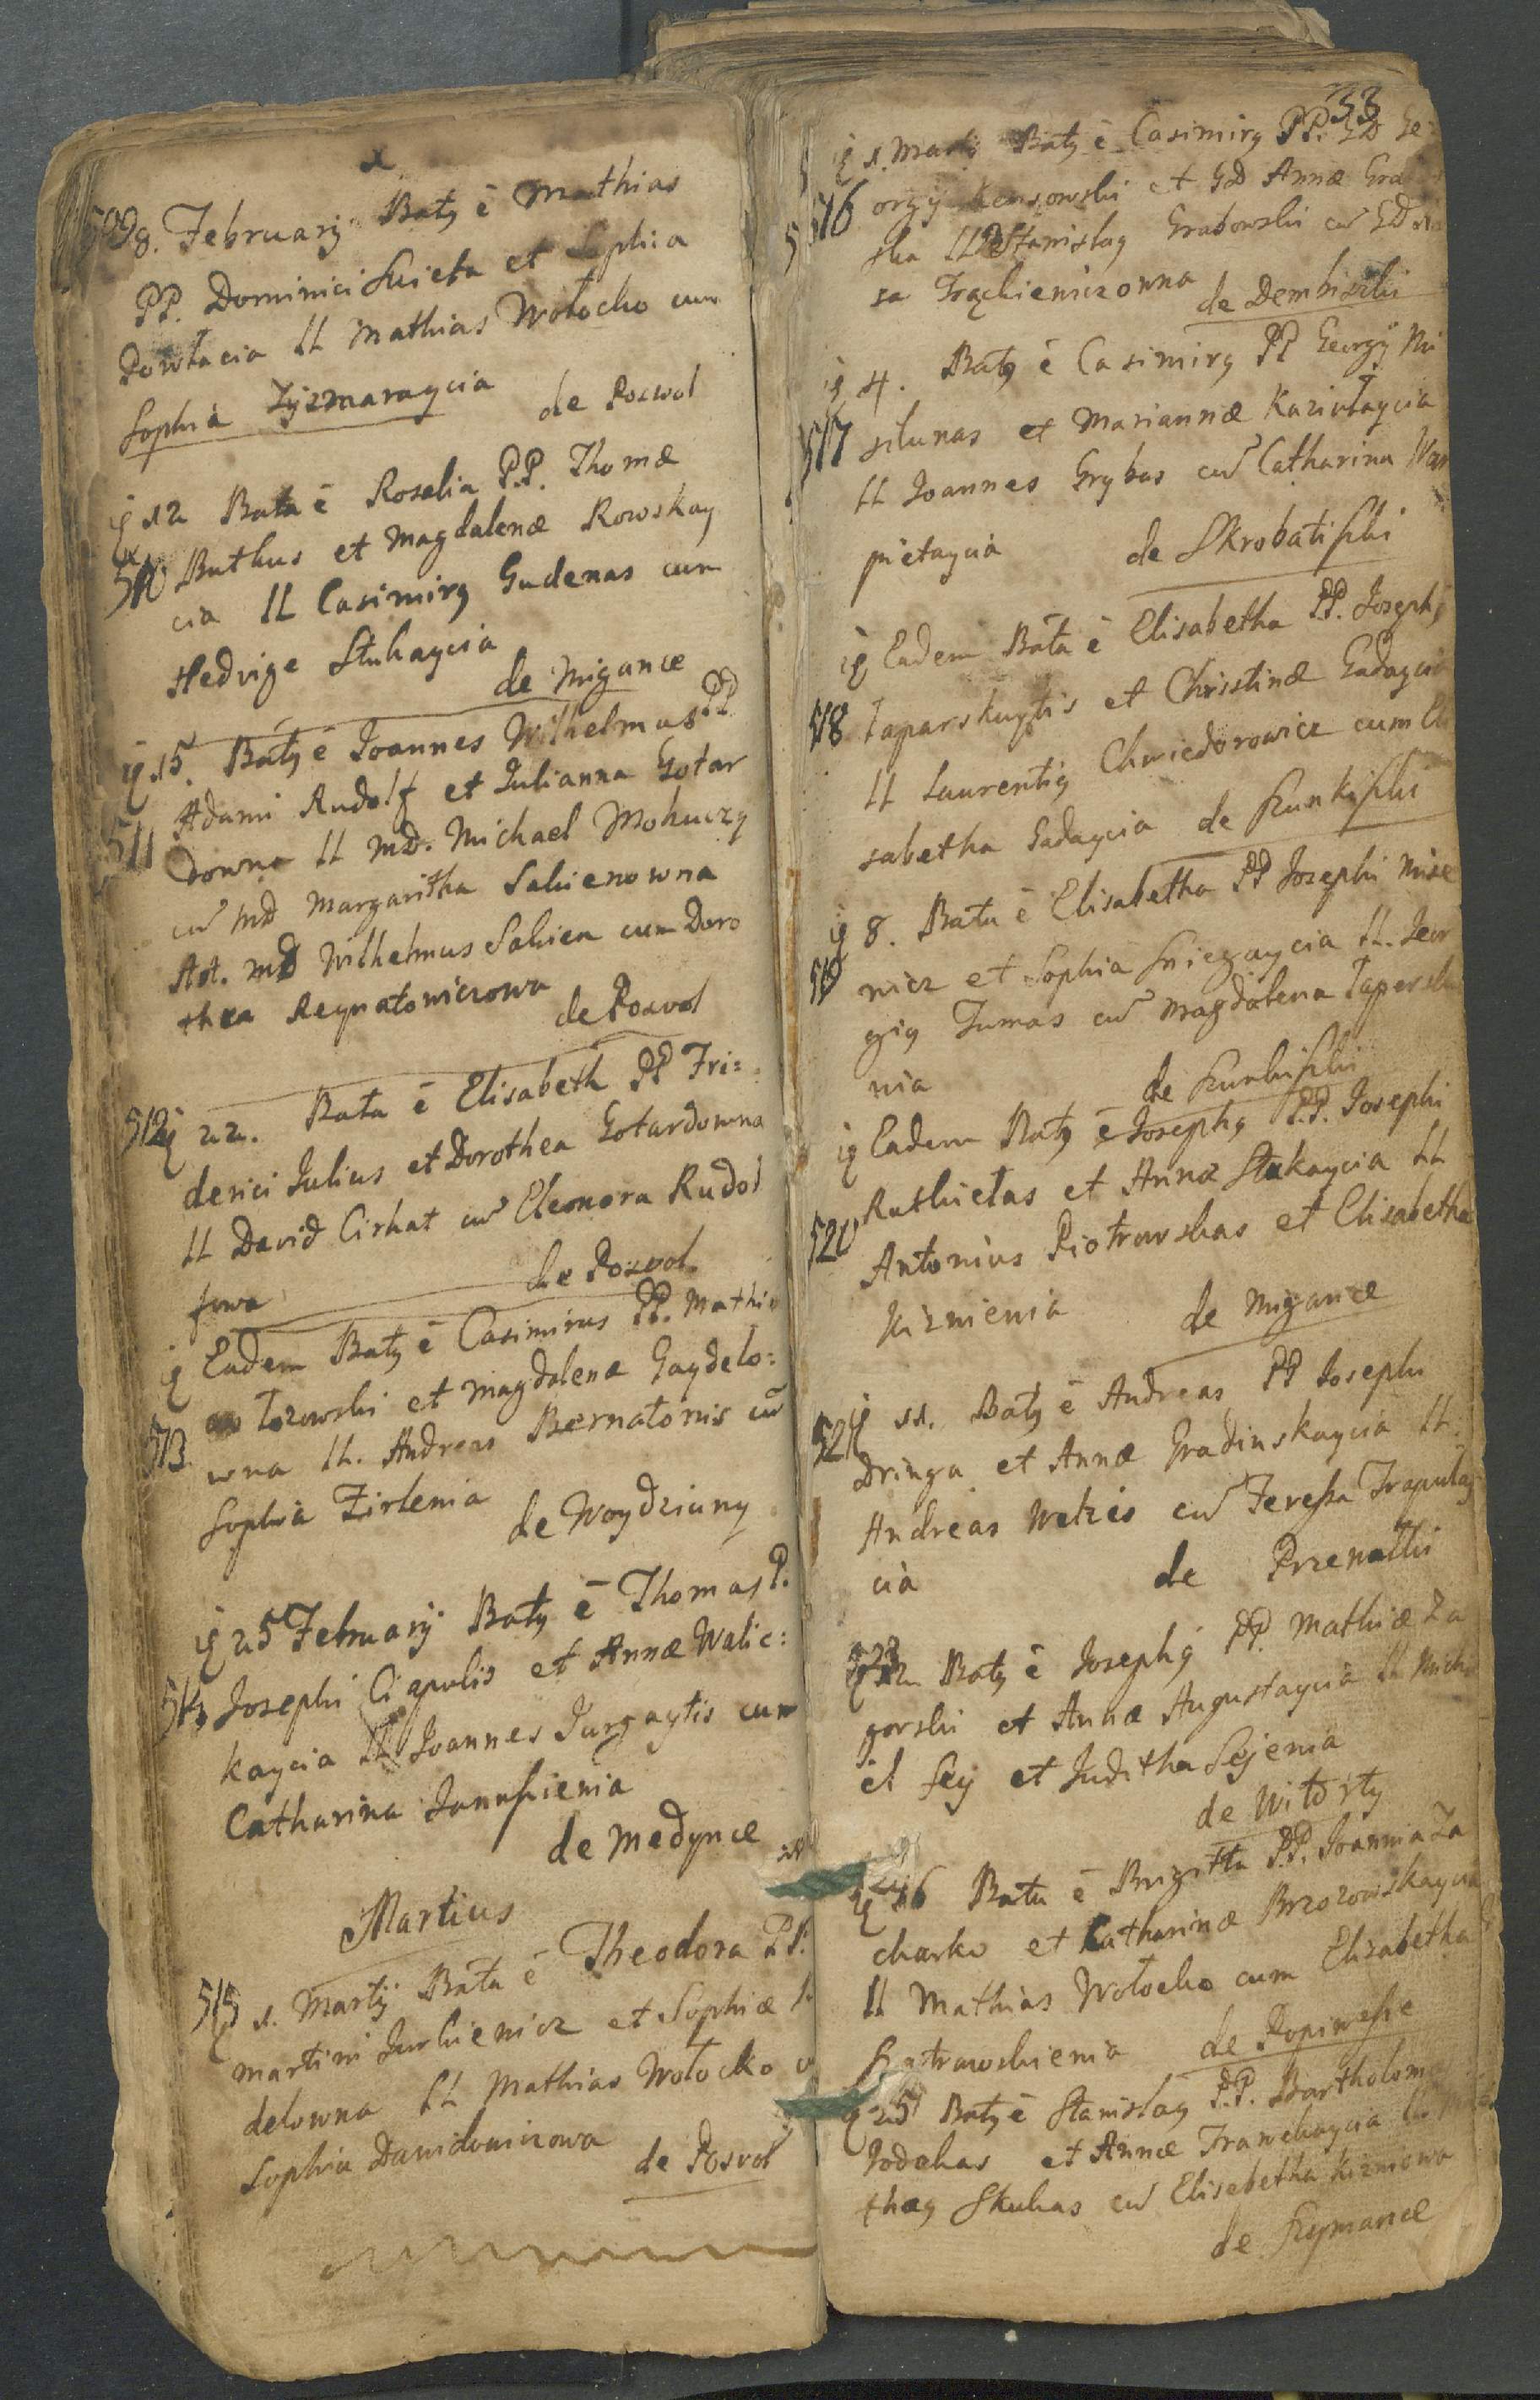 509 8. February Batq ē Mathias
PP. Dominici Swieta et Sophia
Powłacia LL Mathias Wołocko cum
Sophia Zyzmaraycia de Poswol
ig 12 Bata ē Rosalia P.P. Thomæ
510 Buthus et Magdalenæ Rowskay
cia LL Casimirq Gudenas cum
Hedvige Stukaycia
de Migance
ig 15. Batq ē Joannes Wilhelmus PP
Adami Rudolf et Julianna Gotar
511 downa LL MD. Michael Mohuczy
cu MD Margaritha Sakienowna
Ast. MD Wilhelmus Sakien cum Doro
thea Reynatowiczowa
de Posvol
512 ig 22. Bata ē Elisabeth PP Fri:
derici Julius et Dorothea Gotardowna
LL David Cirkat cu Eleonora Rudol
fowa de Posvol
ig Eadem Batq ē Casimirus PP. Mathi
Łozowski et Magdalena Gaydelo:
513 wna LL. Andreas Bernatonis cū
Sophia Zirlenia
de Woydziuny
ig 25 February Batq ē Thomas P.
514 Josephi Cizpulis et Annæ Walic:
kaycia LL Joannes Jurgaytis cum
Catharina Januszienia
de Medynce
Martius
515 1. Martij Bata ē Theodora PP.
Martini Jurkiewicz et Sophiæ
delowna LL Mathias Wołocko
Sophia Dawidowiczowa
de Posvol
53
ig 1. Martij Batq ē Casimirq PP. GD Ge
516 orgij et GD Annæ Gra
ska LL Stanislaq Grabowski cu GD
sa Frąckiewiczowna
de Dembiszki
ig 4. Batq ē Casimirq PP Georgij Mi
517 silunas et Mariannæ Kaziułaycia
LL Joannes Grybas cu Catharina War
pietaycia de Skrobatiszki
ig Eadem Bata ē Elisabetha PP. Josephi
518 Taparskuytis et Christinæ Gadaycia
LL Laurentiq Chwiedorowicz cum Eli
sabetha Gadaycia de Kunkiszki
ig 8. Bata ē Elisabetha PP Josephi Mise
519 wicz et Sophia Sniegaycia LL. Geor
giq Tumas cu Magdalena Tapersk
nia de Kunkiszki
ig Eadem Batq ē Josephq P.P. Josephi
Rutkietas et Annæ Stukaycia LL
520 Antonius Piotrowskas et Elisabetha
Kiznienia de Migance
521 ig 11. Batq ē Andreas PP Josephi
Dringa et Annæ Gradinskaycia LL.
Andreas Wetzis cu Teresza Trapulay
cia de Przenatki
522 Batq ē Josephq PP. Mathiæ Za
gorski et Annæ Augustaycia LL Micha
el Sey et Juditha Sejenia
de Witorty
ig 16 Bata ē Brigitta P.P. Joannia Za
charko et Catharinæ Brzozowskaycia
LL Mathias Wołocko cum Elisabetha
Pietrowskienia de Popiwesze
ig 25 Batq ē Stanislaq P.P. Bartholom
Jodekas et Annæ Tranckaycia LL
thæq Skukas cu Elisebetha Kizniowa
de Szymance